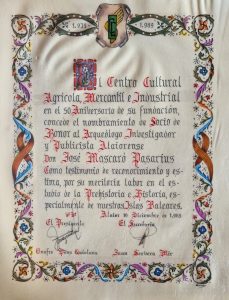 1.939 1.989
El Centro Cultural
Agrícola, Mercantil e Industrial
en el 50 Aniversario de su fundación,
concede el nombramiento de Socio de
Honor al Arqueólogo Investigador
y Publicista Alaiorense
Don José Mascaró Pasarius
Como testimonio de reconocimiento y es-
tima, por su meritoria labor en el es-
tudio de la Prehistoria e Historia, es-
pecialmente de nuestras Islas Baleares.
Alaior 16 Diciembre de 1.989
El Presidente El Secretario
Onofre Pons